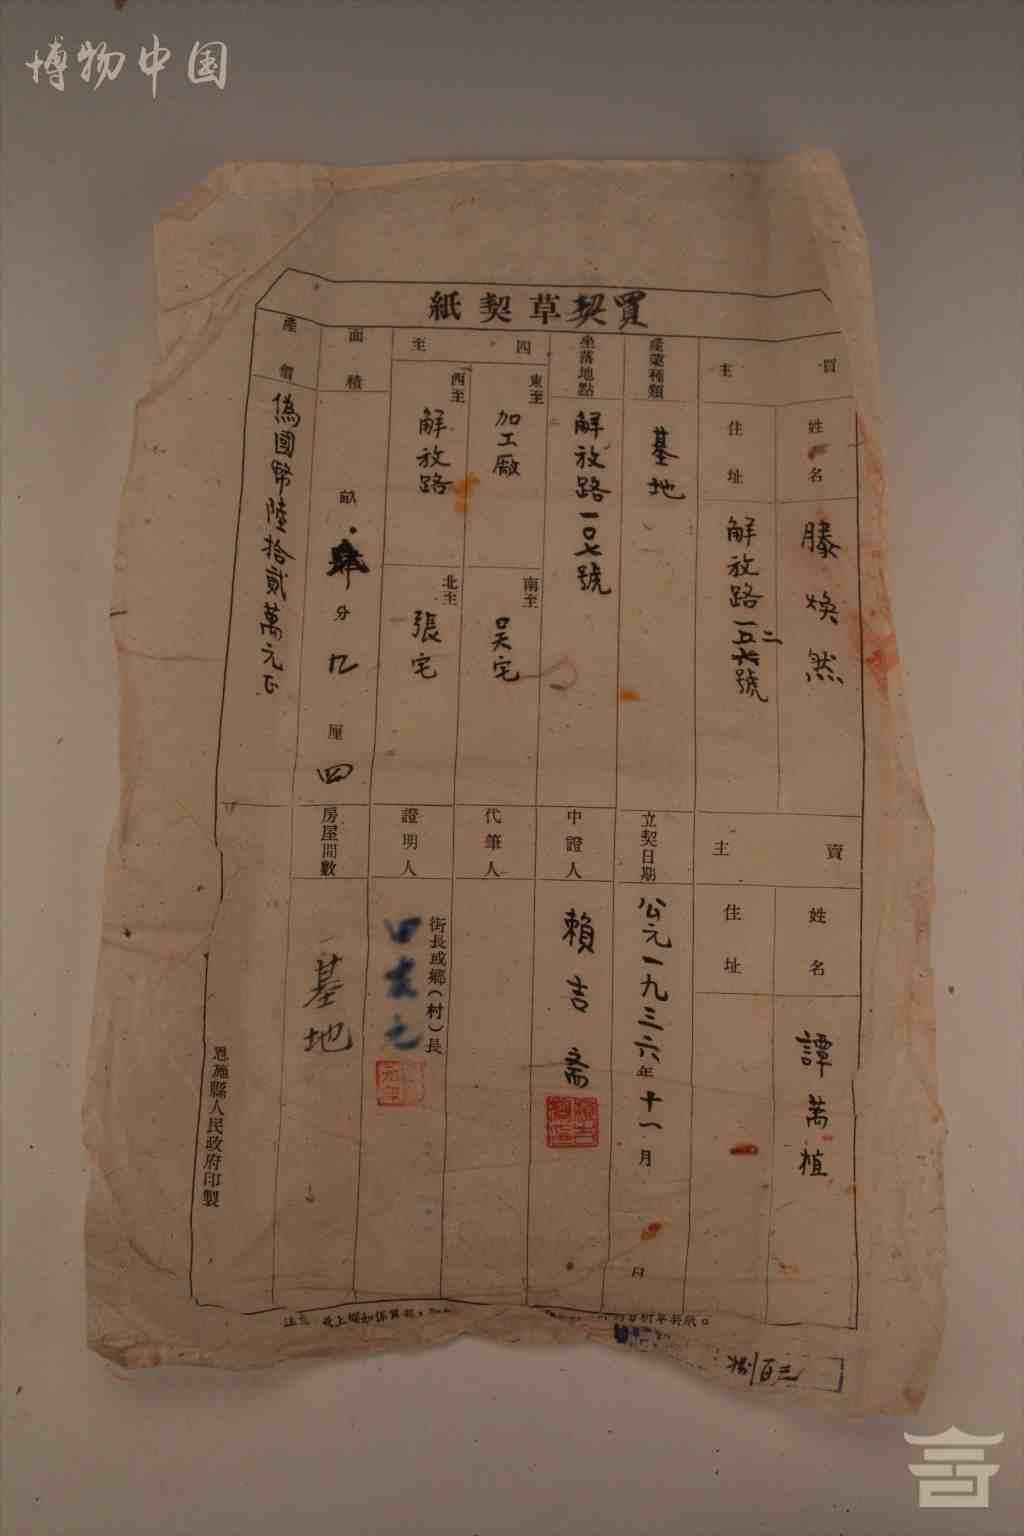 博物中国
買契草契紙
買主
姓名
滕煥然
住址
解放路一五二號
產業種類
基地
坐落地點
解放路一〇七號
四至
東至
加工廠
南至
吴宅
西至
解放路
北至
張宅
面積
畝
分
九
厘
四
產價
偽國幣陸拾貳萬元正
賣主
姓名
譚萬植
住址
立契日期
公元一九三六年十一月
日
中證人
賴吉斋
代筆人
證明人
街長或鄉(村)長
房屋間數
基地
恩施縣人民政府印製